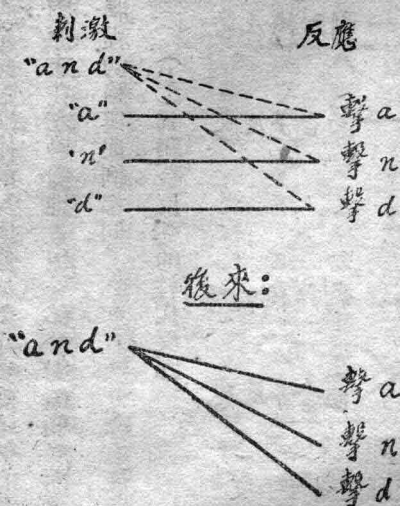 刺激 反應
"and"
"a" 擊 a
"n" 擊 n
"d" 擊 d
後來：
"and"
擊 a
擊 n
擊 d